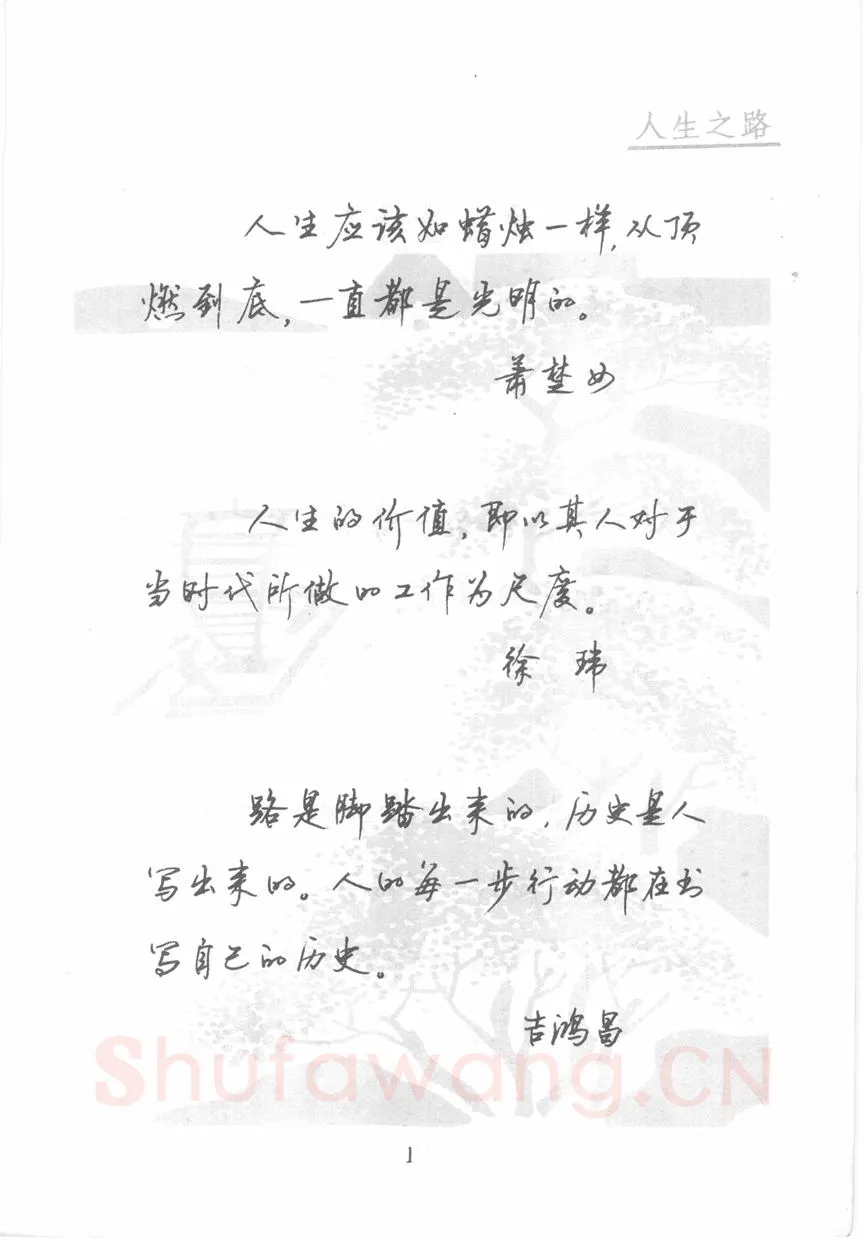 人生之路
人生应该如蜡烛一样,从顶
燃到底,一直都是光明的。
萧楚女
人生的价值,即以其人对于
当时代所做的工作为尺度。
徐玮
路是脚踏出来的,历史是人
写出来的。人的每一步行动都在书
写自己的历史。
吉鸿昌
Shufawang.CN
1